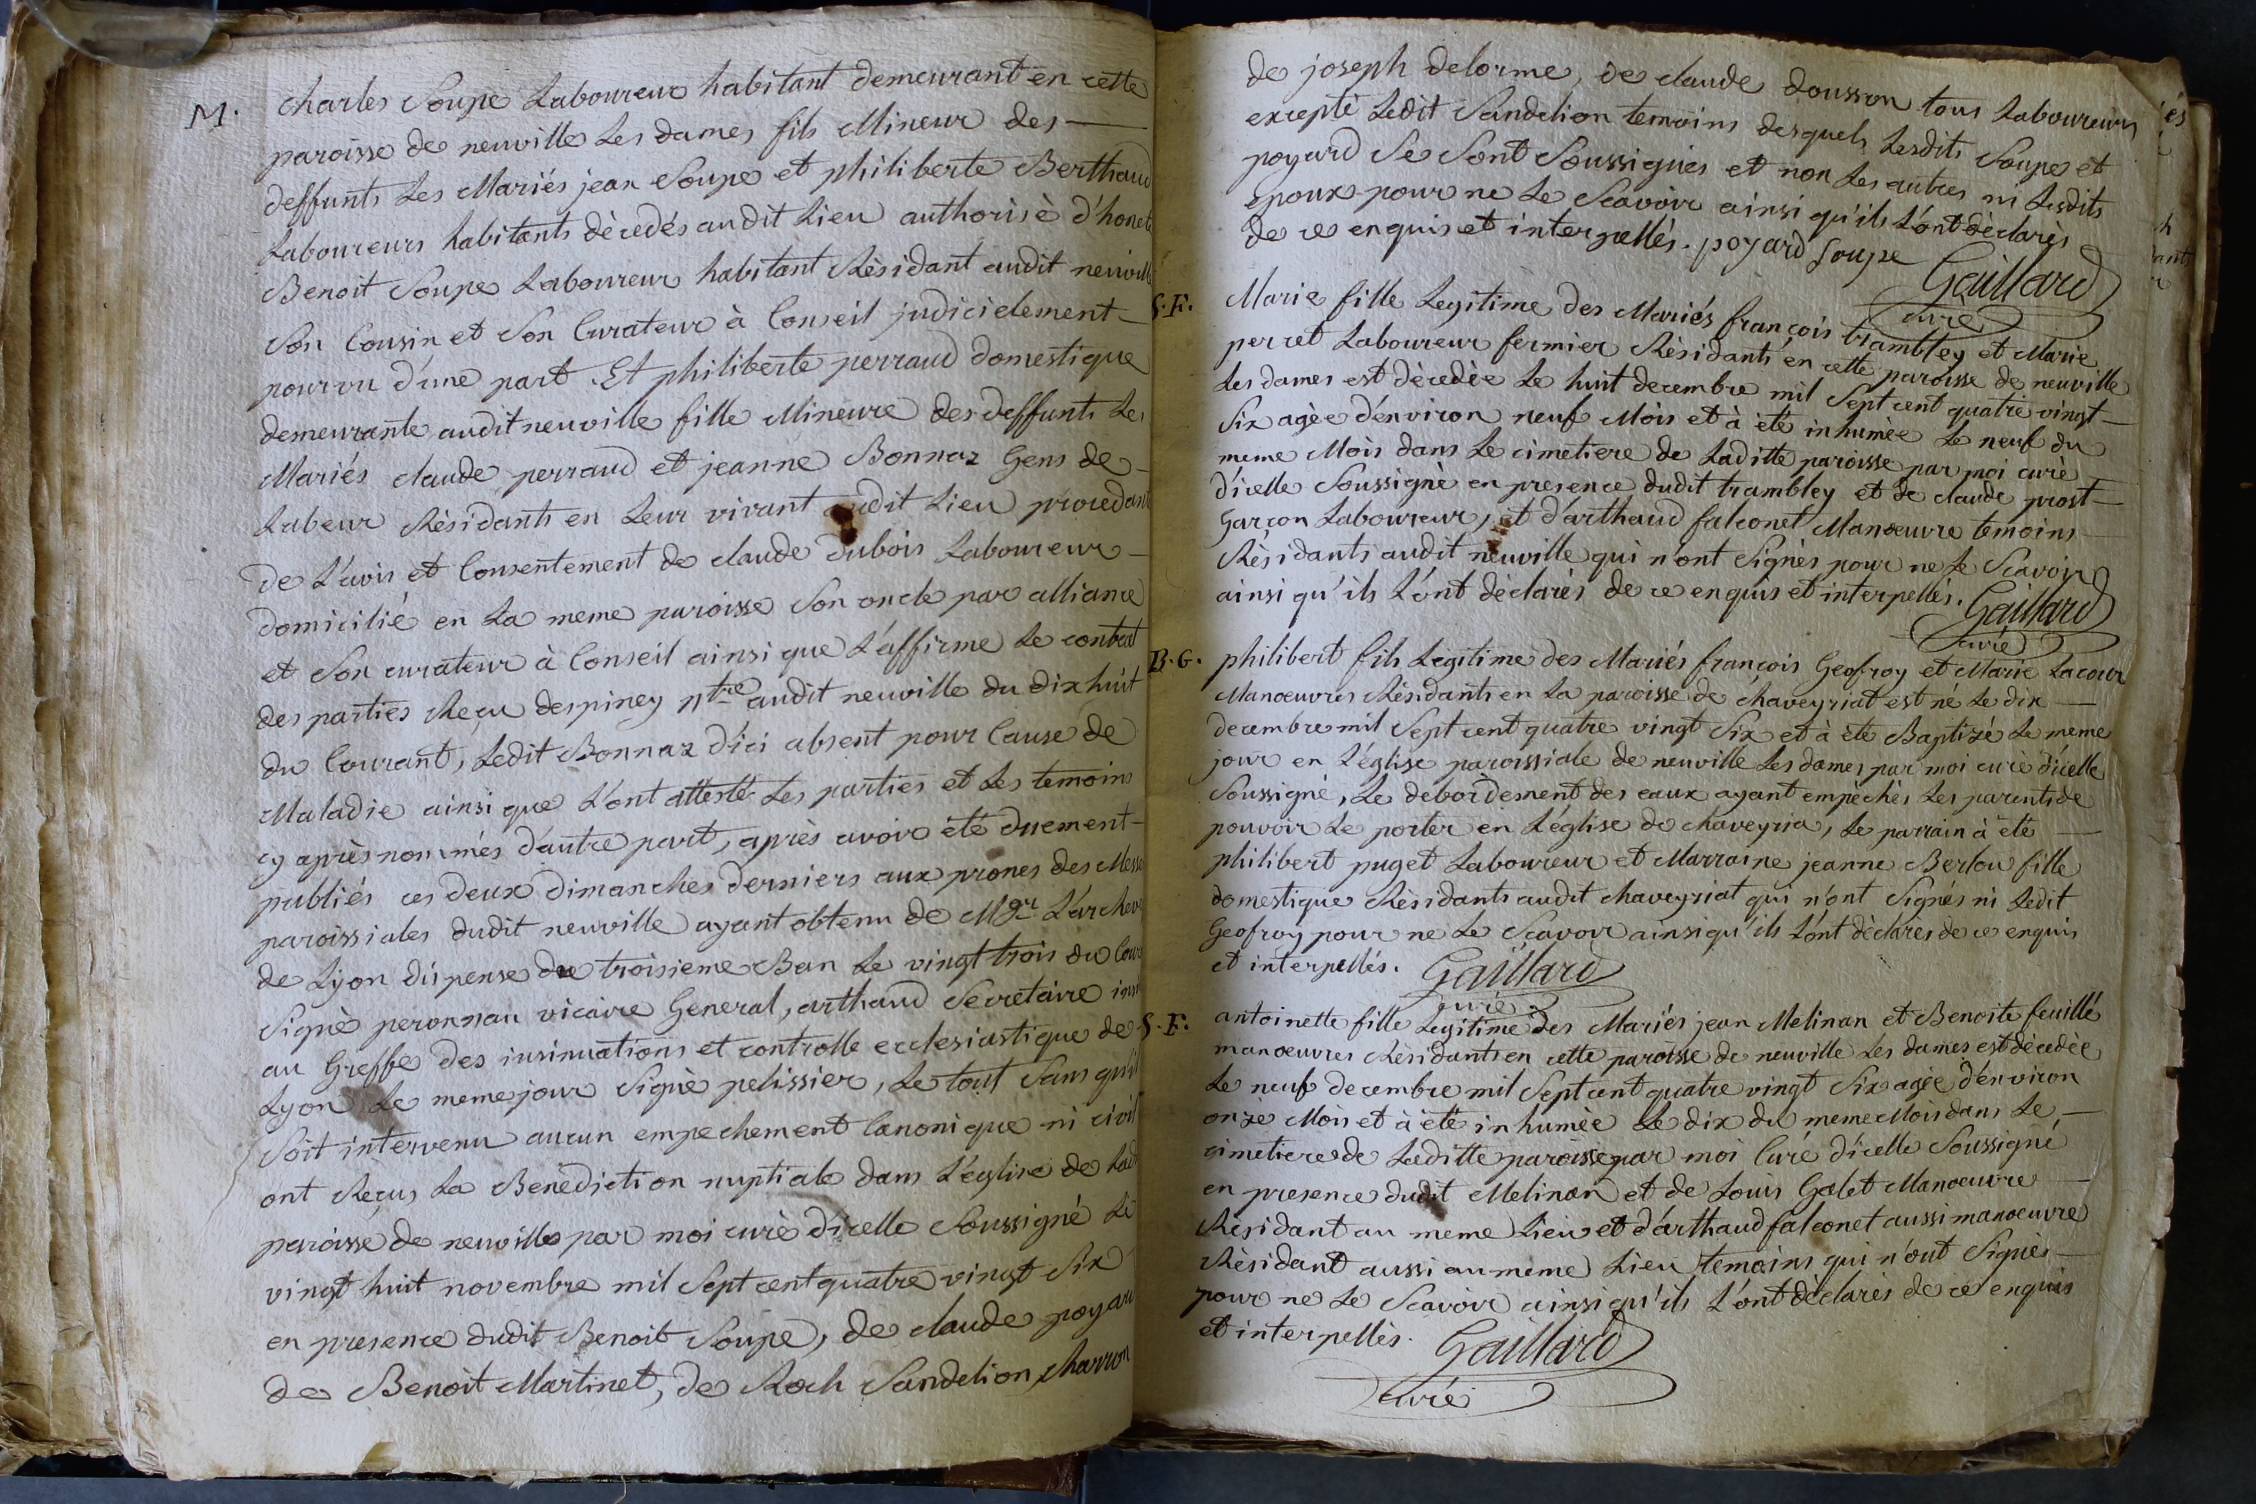 M.
Charles Soupe Laboureur habitant demeurant en cette
paroisse de neuville Les dames fils Mineur des
deffunts Les Mariés jean Soupe et philiberte Berthaud
Laboureurs habitants dècedés audit Lieu authorisè d'honete
Benoit Soupe Laboureur habitant Rèsidant audit neuville
Son Cousin et Son Curateur à Conseil judicielement
pourvu d'une part. Et philiberte perraud domestique
demeurante audit neuville fille Mineure des deffunts Les
Mariés claude perraud et jeanne Bonnaz Gens de
Labeur Rèsidants en Leur vivant audit Lieu procedante
de L'avis et Consentement de claude dubois Laboureur
domicilié en La meme paroisse Son oncle par alliance
et Son curateur à Conseil ainsi que L'affirme Le contrat
des parties Reçu despiney ntre audit neuville du dix huit
du Courant, Ledit Bonnaz d'ici absent pour Cause de
Maladie ainsi que L'ont attesté Les parties et Les temoins
cy après nommés d'autre part, après avoir été duement
publiés ces deux dimanches derniers aux prones des Messes
paroissiales dudit neuville ayant obtenu de Mgr L'archev
de Lyon dispense du troisieme Ban Le vingt trois du Cour
Signè peronnau vicaire General, arthaud Secretaire
au Greffe des insinuations et controlle ecclesiastique de
Lyon Le meme jour Signè pelissier, Le tout Sans qu'il
Soit intervenu aucun empechement Canonique ni civil
ont Reçus La Benèdiction nuptiale dans L'église de Ladt
paroisse de neuville par moi curè d'icelle Soussigné Le
vingt huit novembre mil Sept cent quatre vingt Six
en presence dudit Benoit Soupe, de claude poyard
de Benoit Martinet, de Roch Sandelion charron
de joseph delorme, de claude dousson tous Laboureurs
excepté Ledit Sandelion temoins desquels Lesdits Soupe et
poyard Se Sont Soussignés et non Les autres ni Lesdits
Epoux pour ne Le Scavoir ainsi qu'ils L'ont dèclarès
de ce enquis et interpellés. poyard Soupe
Gaillard
curé
S.F.
Marie fille Legitime des Mariés françois trambley et Marie
perret Laboureur fermier Rèsidants en cette paroisse de neuville
Les dames est dècedèe Le huit decembre mil Sept cent quatre vingt
Six agèe d'environ neuf Mois et à été inhumèe Le neuf du
meme Mois dans Le cimetiere de Laditte paroisse par moi curè
d'icelle Soussigné en presence dudit trambley et de claude prost
Garçon Laboureur, et d'arthaud falconet Manoeuvre temoins
Rèsidants audit neuville qui n'ont Signés pour ne le Scavoir
ainsi qu'ils L'ont dèclarés de ce enquis et interpellés. Gaillard
curé
B.G.
philibert fils Legitime des Mariés françois Geofroy et Marie Lacour
Manoeuvres Rèsidants en La paroisse de chaveyriat est né Le dix
decembre mil Sept cent quatre vingt Six et à été Baptizé Le meme
jour en L'église paroissiale de neuville Les dames par moi curè d'icelle
Soussigné, Le debordement des eaux ayant empèchés Les parents de
pouvoir Le porter en L'église de chaveyria, Le parrain à été
philibert puget Laboureur et Marraine jeanne Berlou fille
domestique Rèsidants audit chaveyriat qui n'ont Signés ni Ledit
Geofroy pour ne Le Scavoir ainsi qu'ils L'ont dèclarès de ce enquis
et interpellés. Gaillard
curé
S.F.
antoinette fille Legitime des Mariés jean Melinan et Benoite feuillé
manoeuvres Rèsidants en cette paroisse de neuville Les dames est dècedèe
Le neuf decembre mil Sept cent quatre vingt Six agèe d'environ
onze Mois et à été inhumèe Le dix du meme Mois dans Le
cimetiere de Laditte paroisse par moi Curé d'icelle Soussigné
en presence dudit Melinan et de Louis Galet Manoeuvre
Rèsidant au meme Lieu et d'arthaud falconet aussi manoeuvre
Rèsidant aussi au meme Lieu temoins qui n'ont Signés
pour ne Le Scavoir ainsi qu'ils L'ont dèclarés de ce enquis
et interpellés. Gaillard
curé